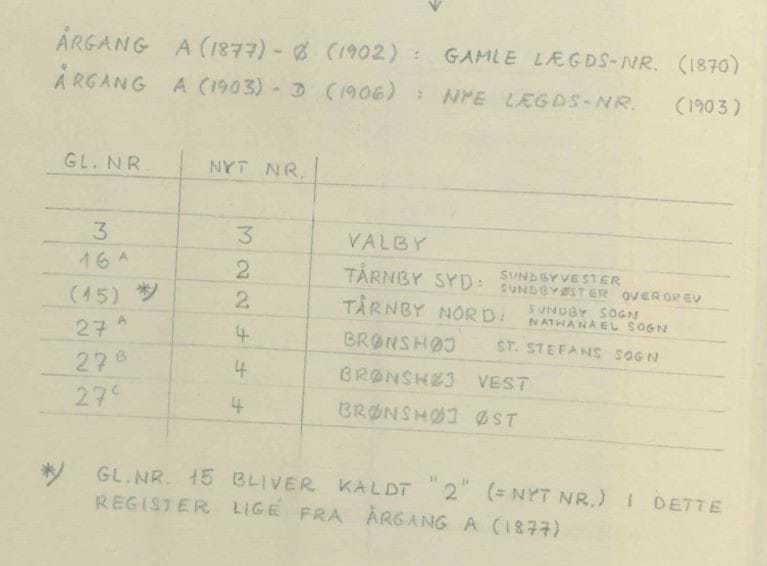 ÅRGANG A (1877) - Ø (1902) : GAMLE LÆGDS-NR. (1870)
ÅRGANG A (1903) - D (1906) : NYE LÆGDS-NR. (1903)
GL. NR NYT NR.
3 3 VALBY
16 A 2 TÅRNBY SYD: SUNDBYVESTER
SUNDBYØSTER OVERDREV
(15) *) 2 TÅRNBY NORD: SUNDBY SOGN
NATHANAEL SOGN
27 A 4 BRØNSHØJ ST. STEFANS SOGN
27 B 4 BRØNSHØJ VEST
27 C 4 BRØNSHØJ ØST
*) GL.NR. 15 BLIVER KALDT "2" (= NYT NR.) I DETTE
REGISTER LIGE FRA ÅRGANG A (1877)